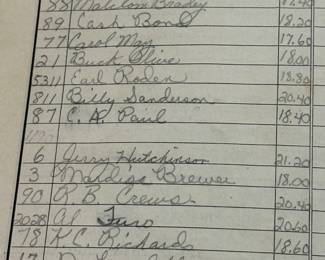 88 Malcolm Brady 17.40
89 Cash Bond 18.20
77 Carol May 17.60
21 Buck Olive 18.00
5311 Earl Roden 18.80
811 Billy Sanderson 20.40
87 C. A. Paul 18.40
6 Jerry Hutchinson 21.20
3 Brewer 18.00
90 R. B. Crews 20.40
2028 Al 20.60
78 K.C. Richards 18.60
17